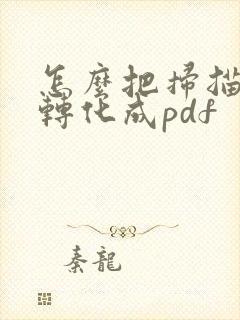 怎麼把掃描
轉化成pdf
秦龍